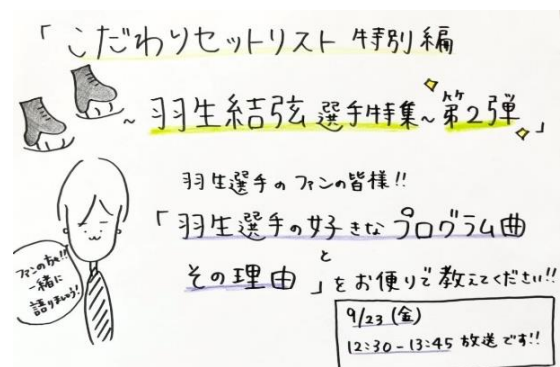 「こだわりセットリスト 特別編
~羽生結弦選手特集~第2弾」
羽生選手のファンの皆様!!
「羽生選手の好きなプログラム曲
と
その理由」をお便りで教えてください!!
ファンの方も!!
一緒に
語りましょう!
9/23(金)
12:30-13:45 放送です!!